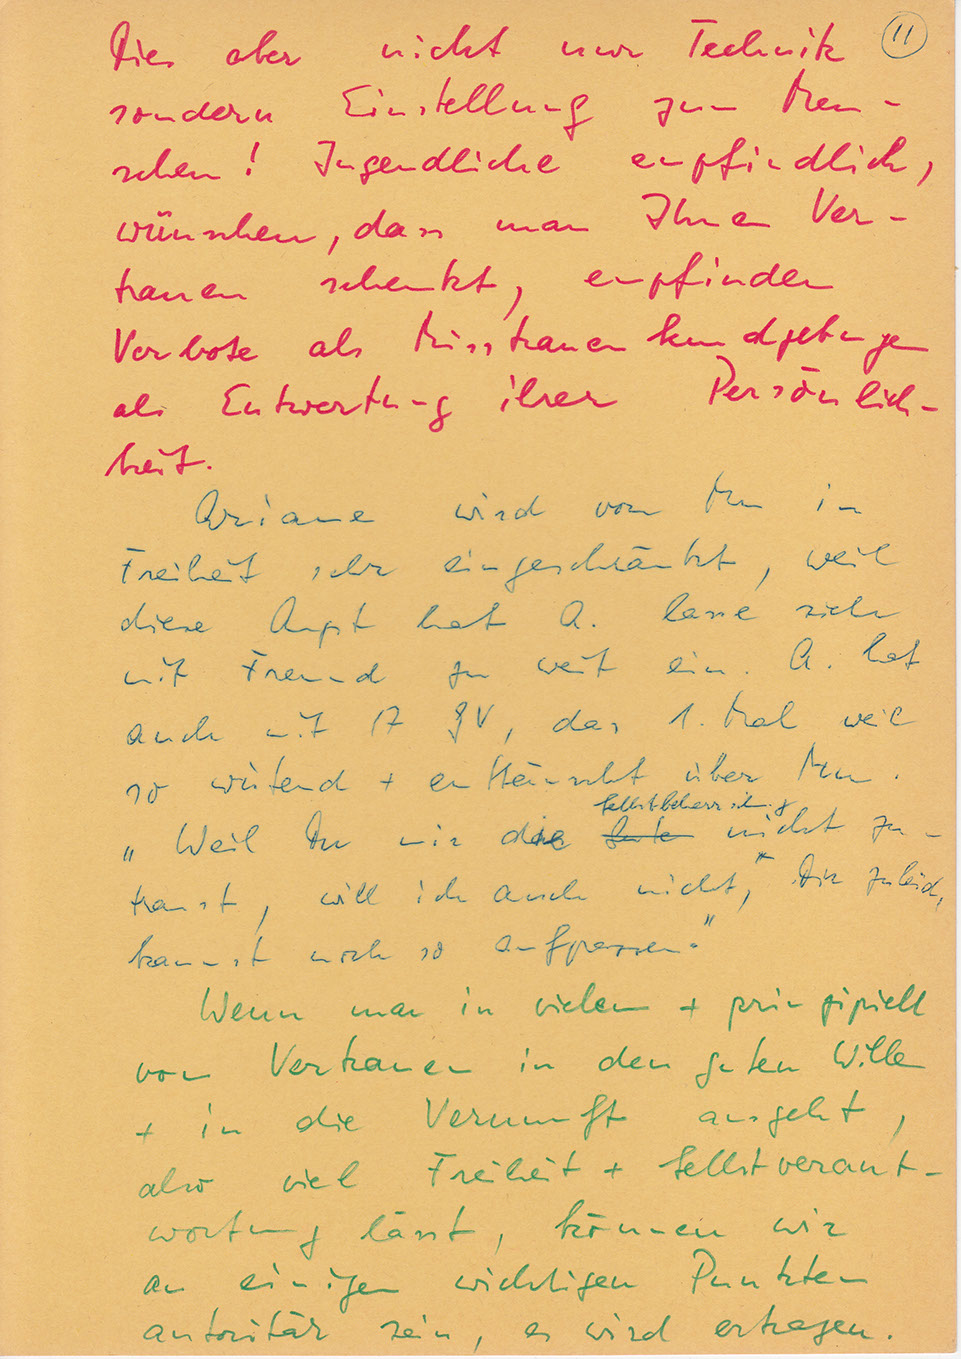 11
Dies aber nicht nur Technik
sondern Einstellung zum Men-
schen! Jugendliche empfindlich,
wünschen, dass man Ihnen Ver-
trauen schenkt, empfinden
Verbote als Misstrauenskundgebungen
als Entwertung ihrer Persönlich-
keit.
Ariane wird von Mu in
Freiheit sehr eingeschränkt, weil
diese Angst hat A. lasse sich
mit Freund zu weit ein. A. hat
auch mit 17 GV, das 1. Mal weil
so wütend + enttäuscht über Mu.
Selbstbeherrschung
„Weil Du mir die nicht zu-
traust, will ich auch nicht, Dir zuleid,
kannst noch so aufpassen."
Wenn man in vielem + prinzipiell
vom Vertrauen in den guten Willen
+ in die Vernunft ausgeht,
also viel Freiheit + Selbstverant-
wortung lässt, können wir
an einigen wichtigen Punkten
autoritär sein, es wird ertragen.